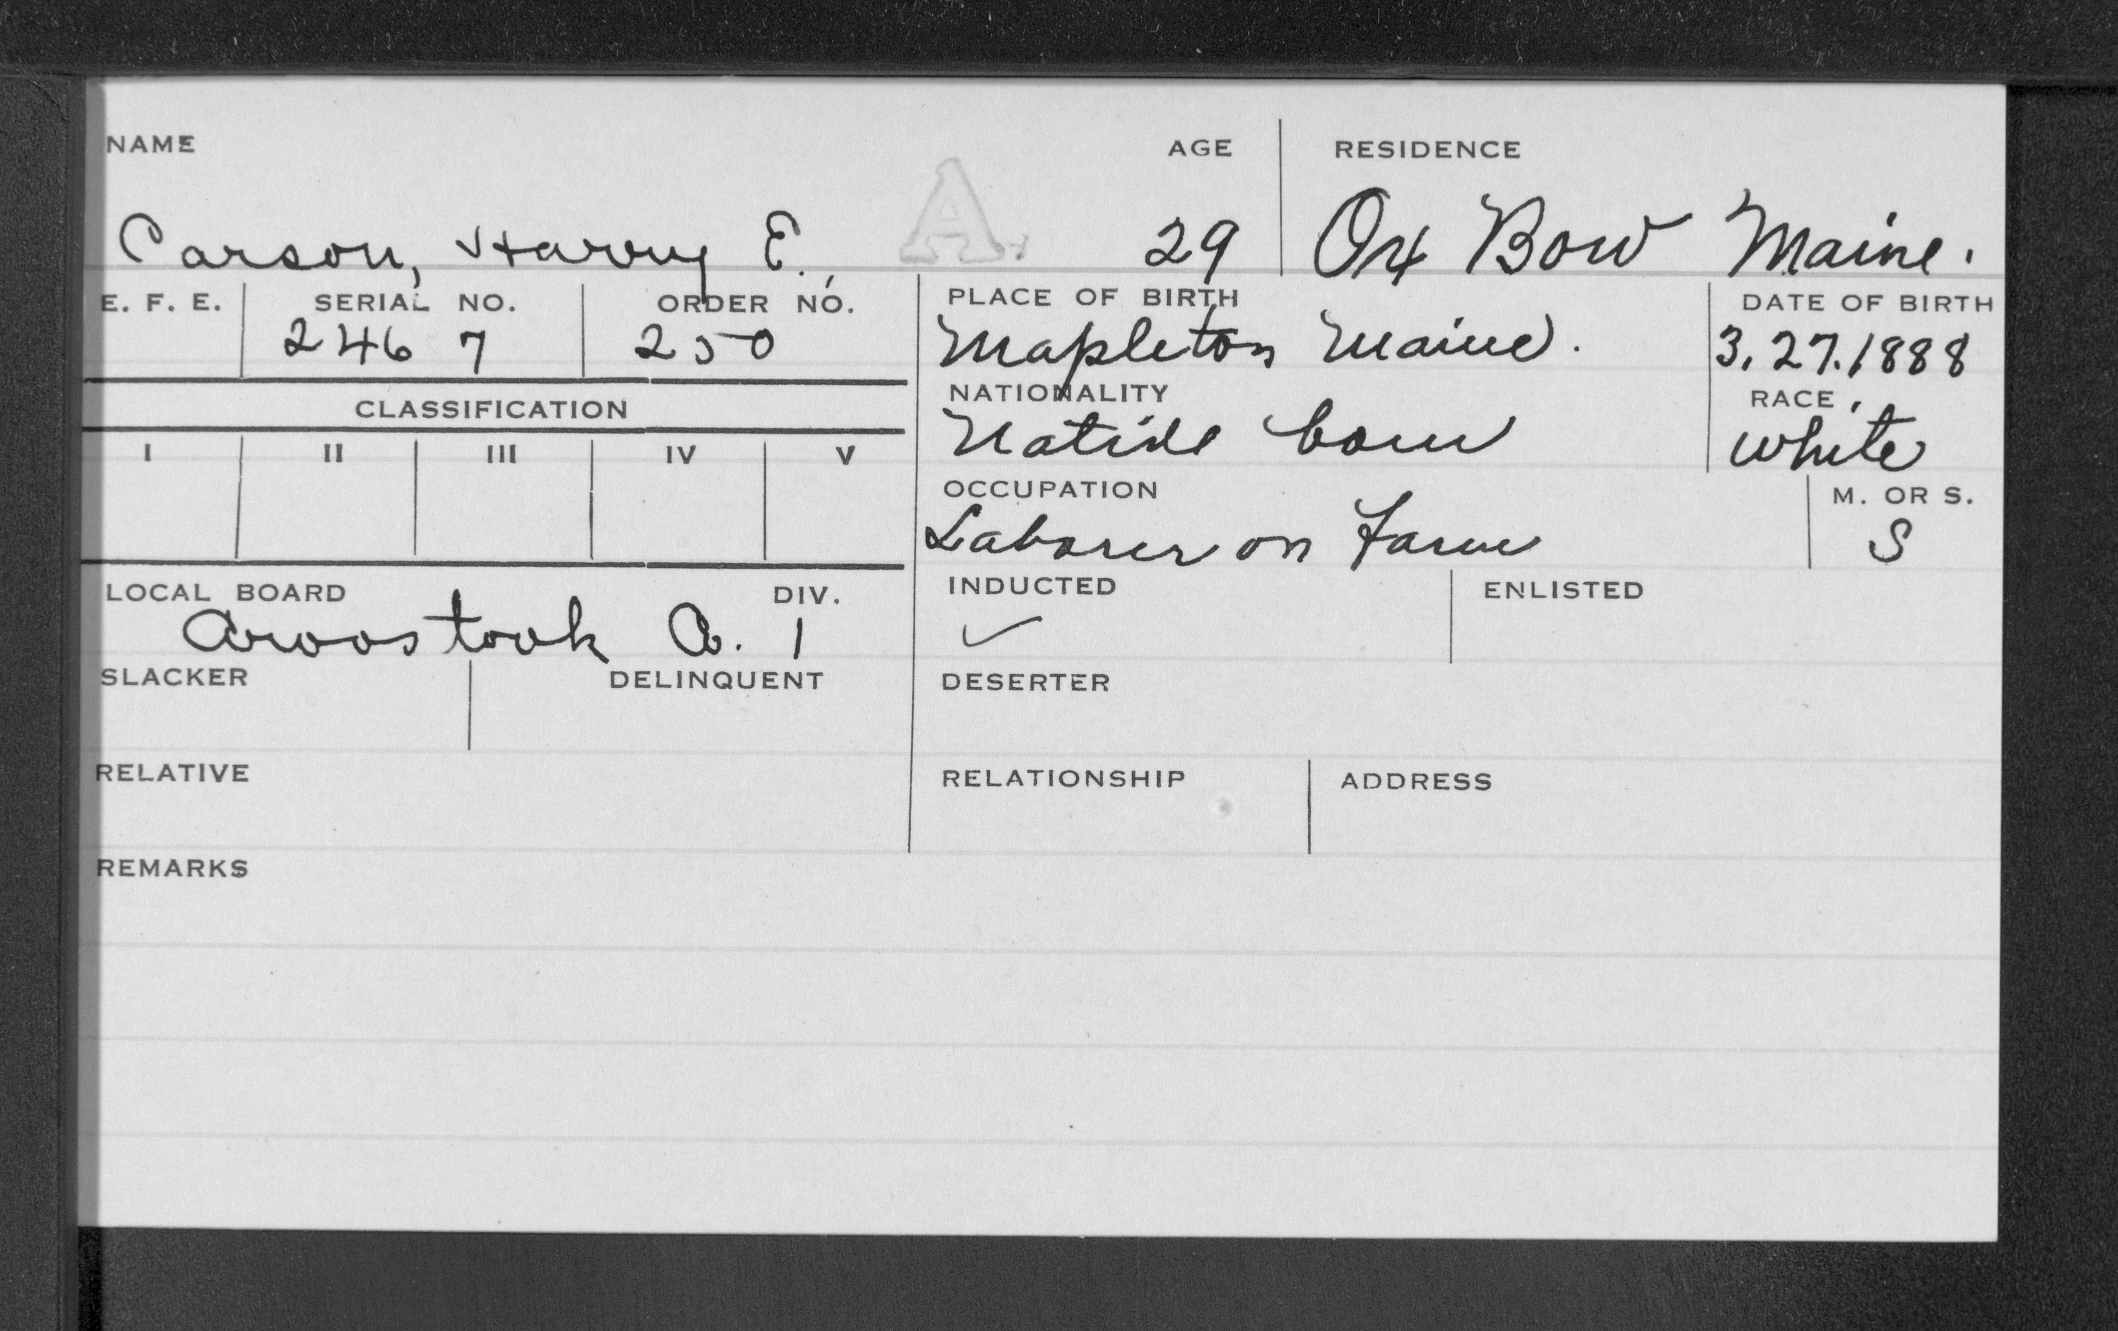 NAME AGE RESIDENCE
Carson, Harry E., A. 29 Ox Bow Maine.
E. F. E. SERIAL NO. ORDER NO. PLACE OF BIRTH DATE OF BIRTH
2467 250 Mapleton Maine. 3.27.1888
NATIONALITY RACE
CLASSIFICATION Native born white
I II III IV V
OCCUPATION M. OR S.
Laborer on Farm S
LOCAL BOARD DIV. INDUCTED ENLISTED
Aroostook Co. 1 ✓
SLACKER DELINQUENT DESERTER
RELATIVE RELATIONSHIP ADDRESS
REMARKS